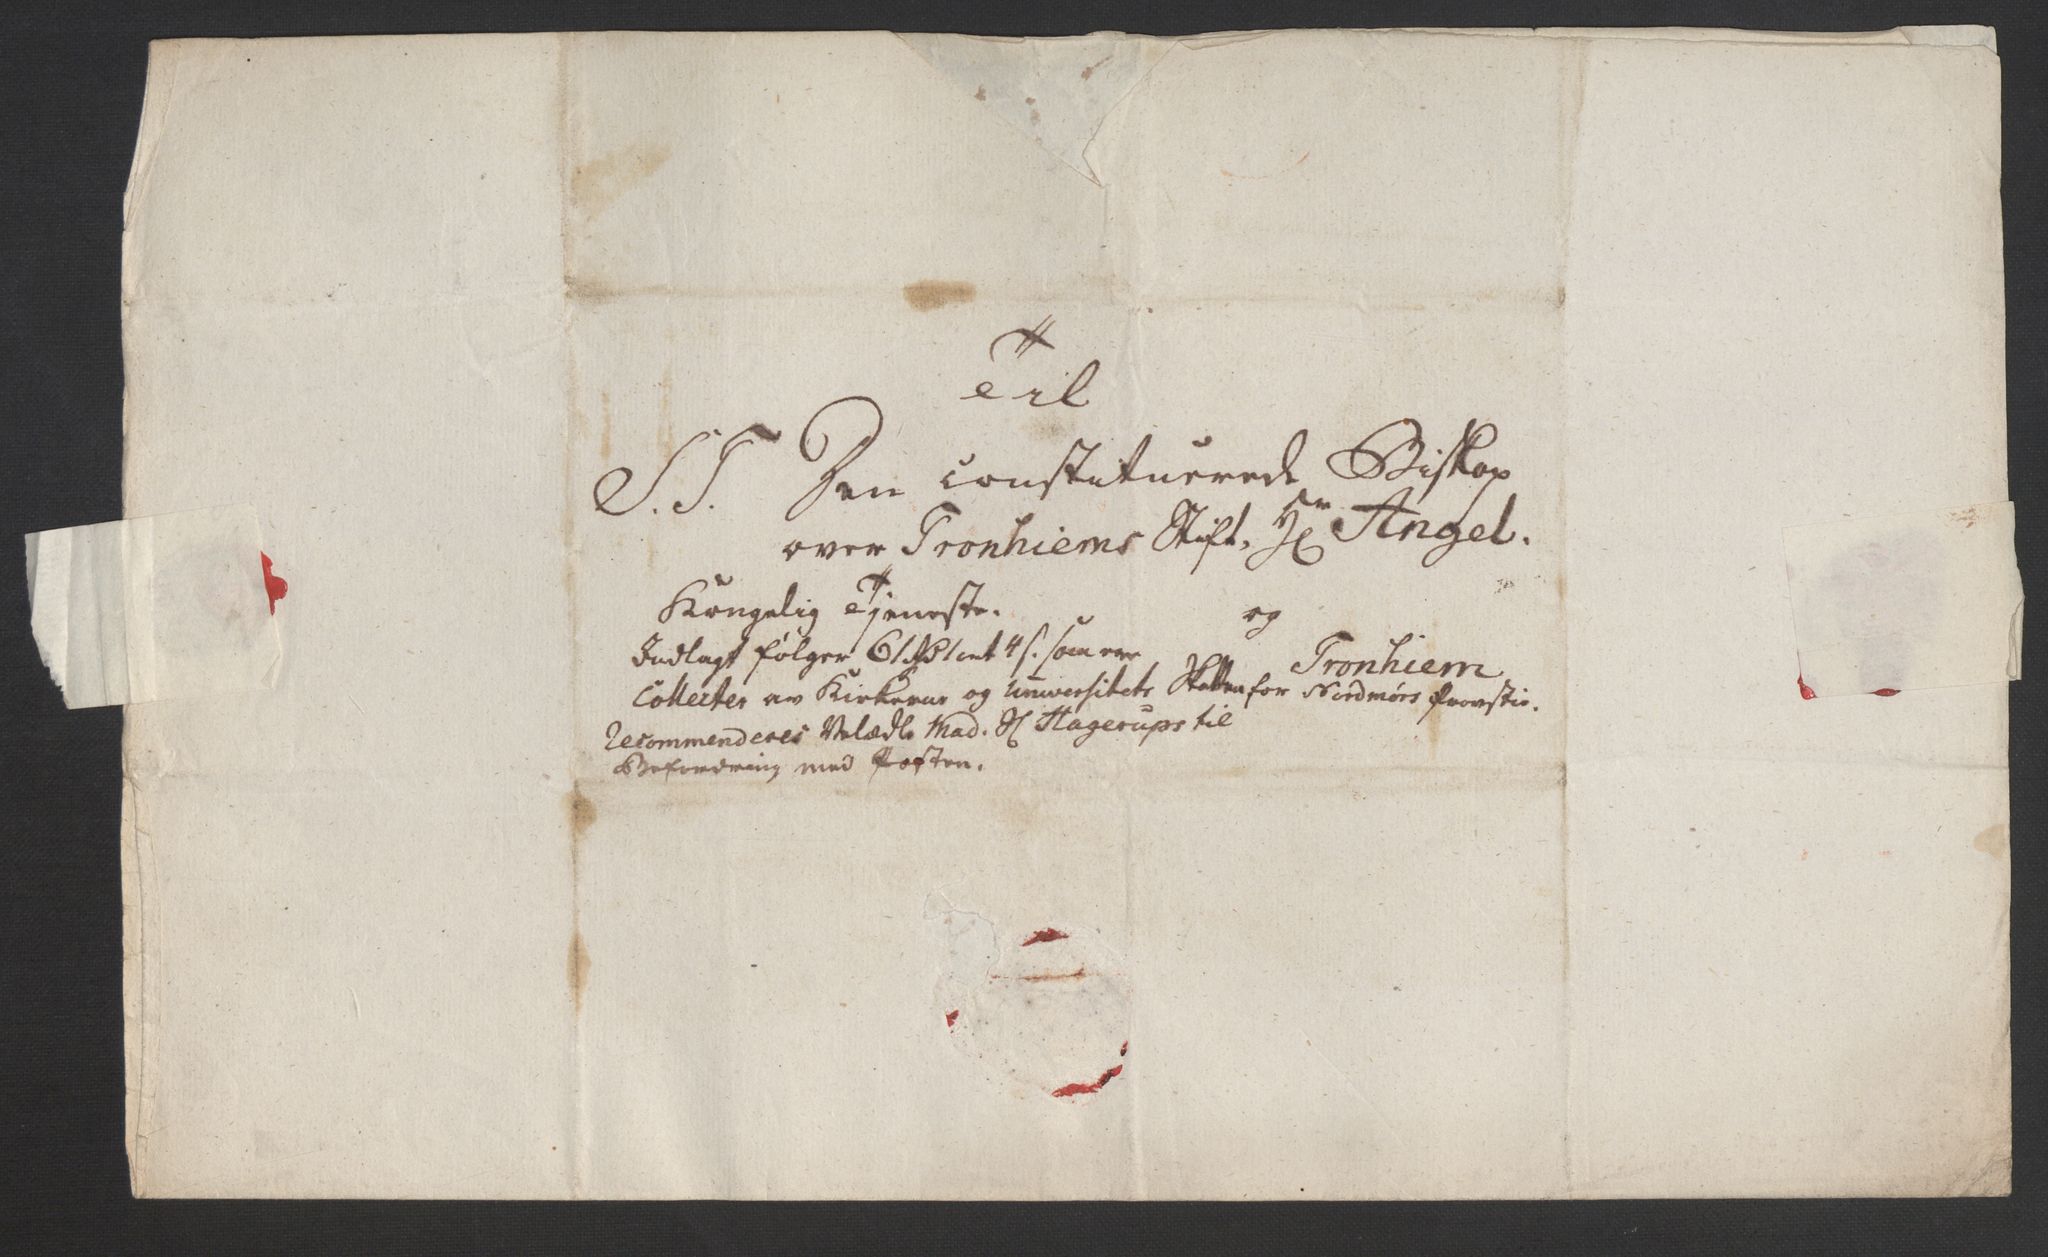 Til
S. T. Den constituerede Biskop
over Tronhiems Stift, Hr Angel.
Kongelig Tjeneste.
og
Indlagt følger 61 4 s. som ere
Tronhiem
Collecter av Kirkerne og Universitets Skatten for Nordmørs Provstie.
recommenderes Velædle Mad. Hagerups til
Befordring med Posten.